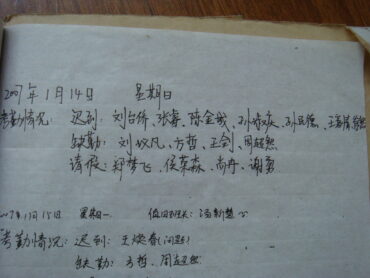 2007年1月14日 星期日
考勤情况: 迟到: 刘台侨、张静、陈金敏、孙、孙臣德、王
缺勤: 刘、方哲、王剑、周超然
请假: 郑梦飞、侯荣森、尚冉、谢勇
07年1月15日 星期一 值日班长: 汤新慧
考勤情况: 迟到: 王焕春(问题)
缺勤: 方哲、周超然